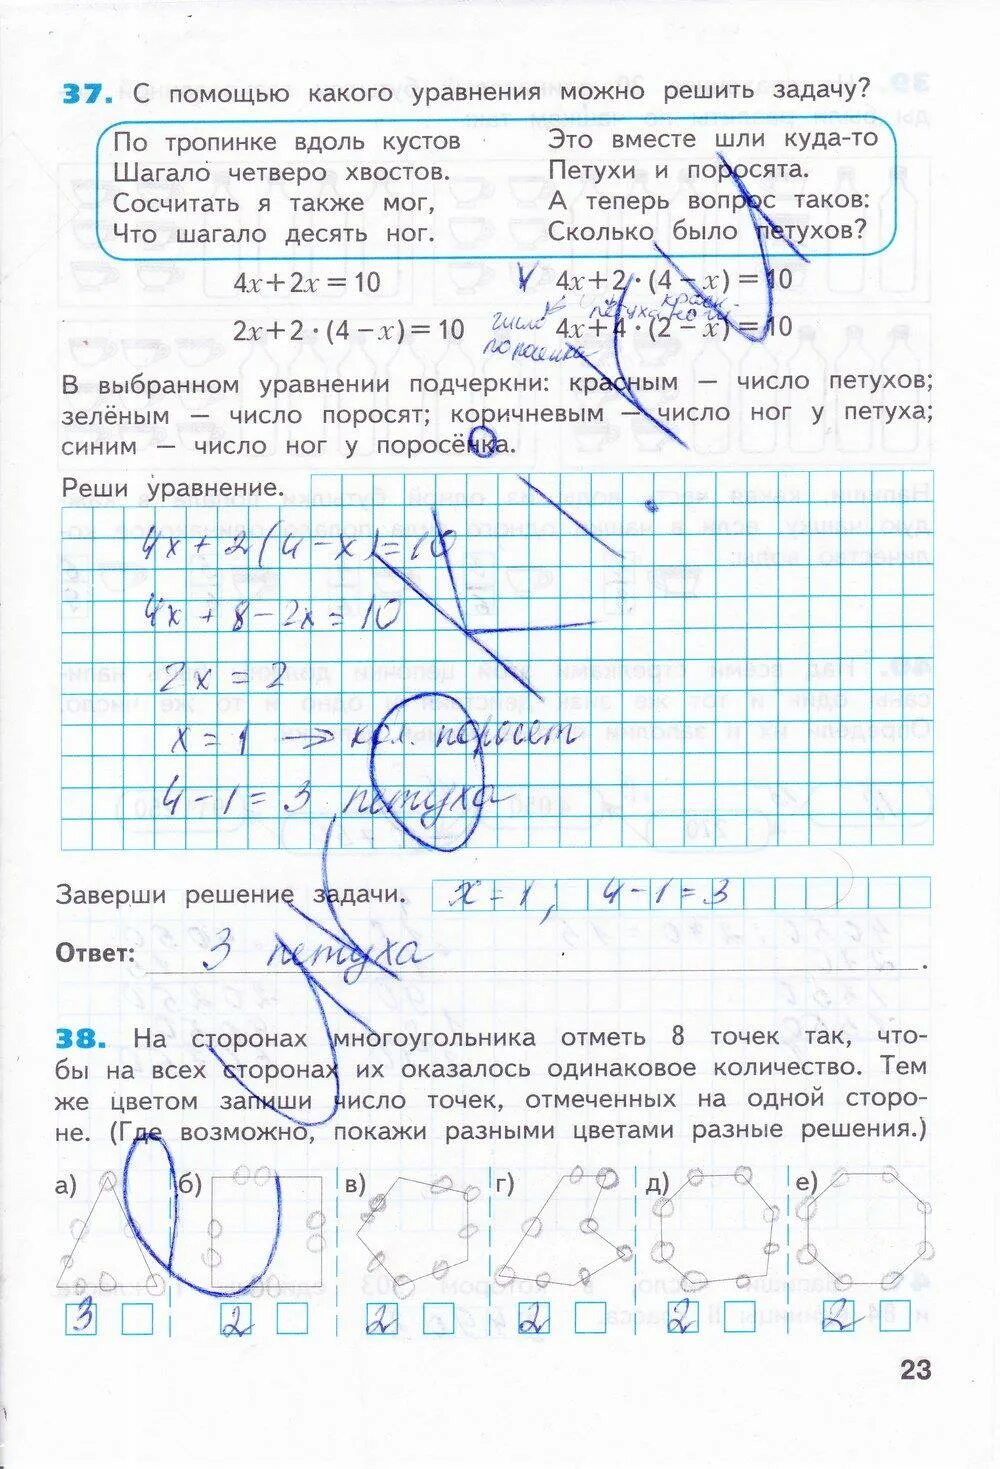 37. С помощью какого уравнения можно решить задачу?
По тропинке вдоль кустов
Шагало четверо хвостов.
Сосчитать я также мог,
Что шагало десять ног.
Это вместе шли куда-то
Петухи и поросята.
А теперь вопрос таков:
Сколько было петухов?
4x+2x=10
V 4x+2·(4-x)=10
2x+2·(4-x)=10
4x+4·(2-x)=10
число
поросенка
В выбранном уравнении подчеркни: красным — число петухов;
зелёным — число поросят; коричневым — число ног у петуха;
синим — число ног у поросёнка.
Реши уравнение.
4x+2(4-x)=10
4x+8-2x=10
2x=2
x=1 → кол. поросет
4-1=3 петуха
Заверши решение задачи. x=1; 4-1=3
Ответ: 3 петуха.
38. На сторонах многоугольника отметь 8 точек так, что-
бы на всех сторонах их оказалось одинаковое количество. Тем
же цветом запиши число точек, отмеченных на одной сторо-
не. (Где возможно, покажи разными цветами разные решения.)
а) б) в) г) д) е)
3 2 2 2 2 2
23